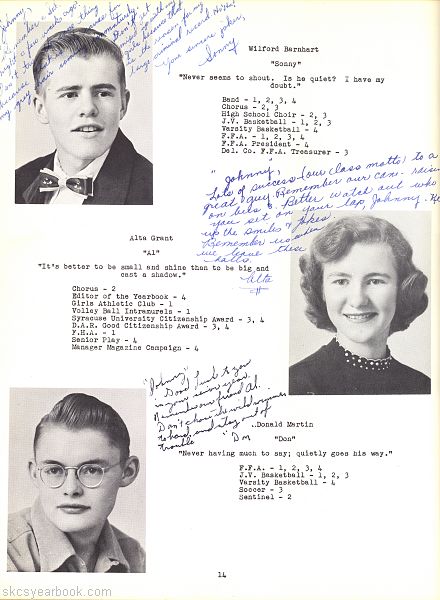 Johnny,
Sonny
Wilford Barnhart
"Sonny"
"Never seems to shout.  Is he quiet?  I have my
doubt."
Band - 1, 2, 3, 4
Chorus - 2, 3
High School Choir - 2, 3
J.V. Basketball - 1, 2, 3
Varsity Basketball - 4
F.F.A. - 1, 2, 3, 4
F.F.A. President - 4
Del. Co. F.F.A. Treasurer - 3
Johnny,
Lots of success (our class motto) to a
great guy. Remember our
Better watch out who
you set on your lap, Johnny.
up the smiles & jokes.
Remember us when
we leave these
halls.
Alta
Alta Grant
"Al"
"It's better to be small and shine than to be big and
cast a shadow."
Chorus - 2
Editor of the Yearbook - 4
Girls Athletic Club - 1
Volley Ball Intramurels - 1
Syracuse University Citizenship Award - 3, 4
D.A.R. Good Citizenship Award - 3, 4
F.H.A. - 1
Senior Play - 4
Manager Magazine Campaign - 4
"Johnny"
Good Luck to you
in your senior year.
Remember our friend Al.
Don't chase the wild women
to hard and stay out of
trouble
"Don
Donald Martin
"Don"
"Never having much to say; quietly goes his way."
F.F.A. - 1, 2, 3, 4
J.V. Basketball - 1, 2, 3
Varsity Basketball - 4
Soccer - 3
Sentinel - 2
14
skcsyearbook.com